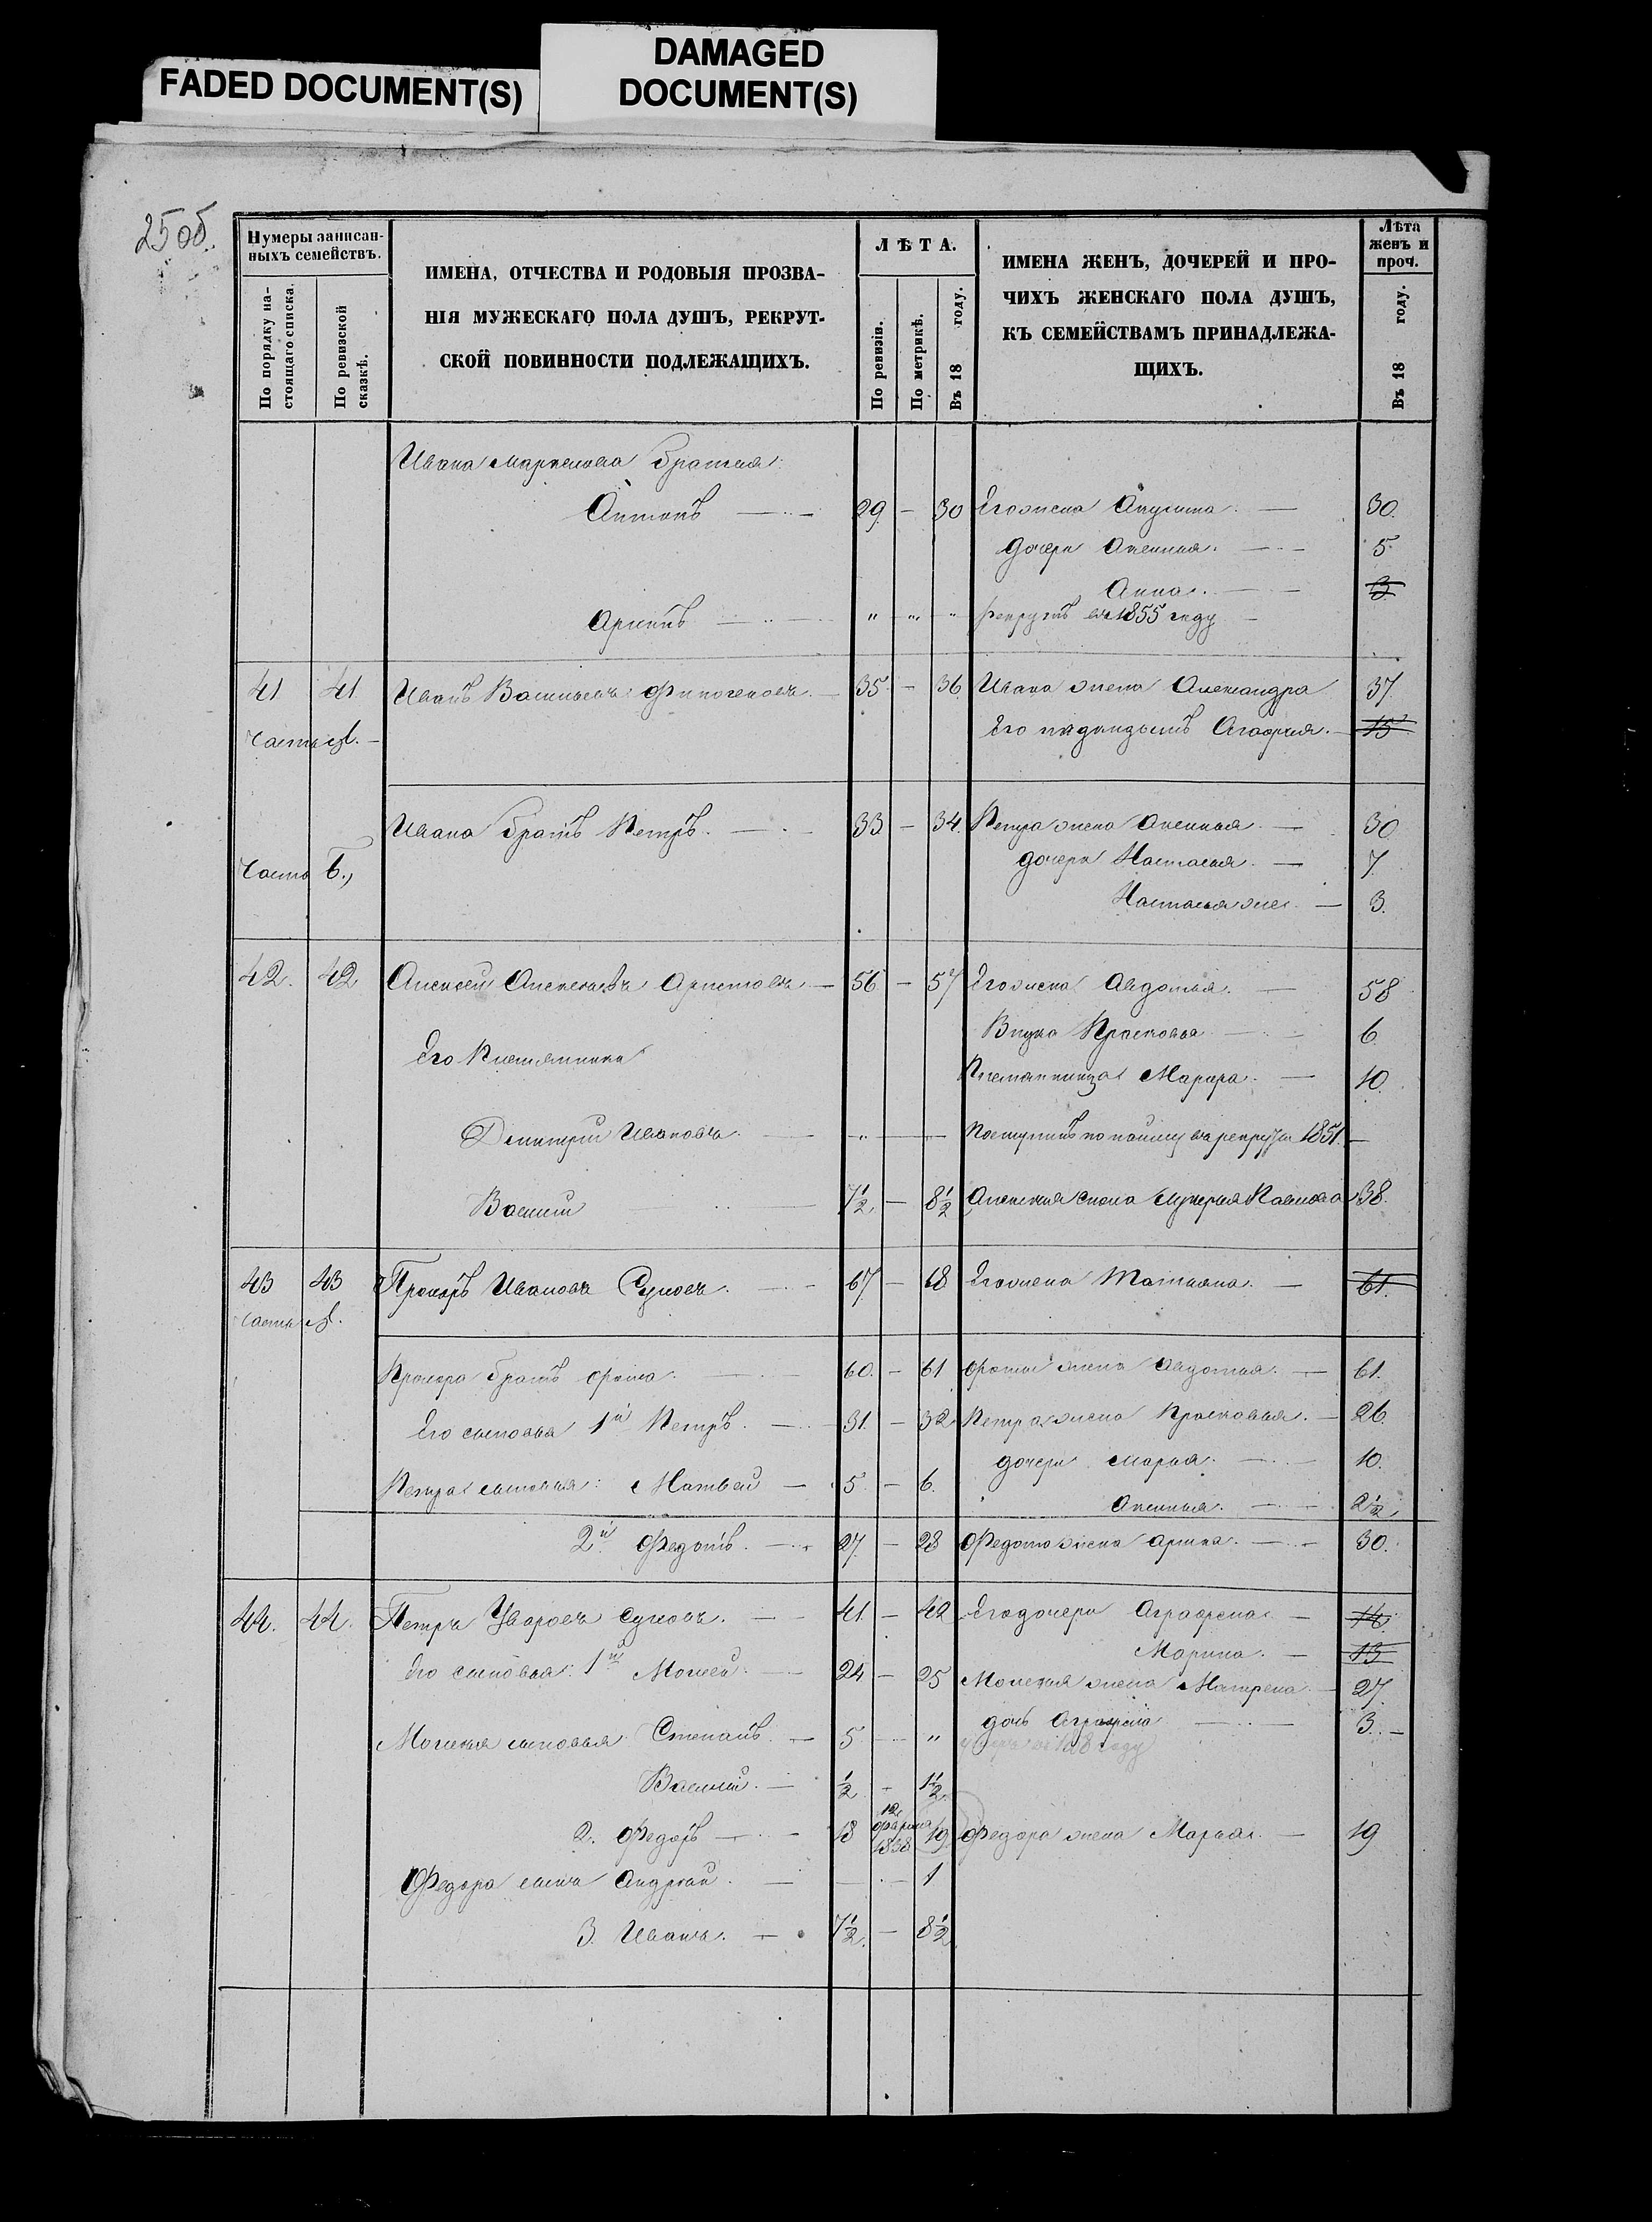 FADED DOCUMENT(S)
DAMAGED
DOCUMENT(S)
25 об.
Нумеры записан-
ныхъ семействъ.
По порядку на-
стоящаго списка.
По ревизской
сказкѣ.
ИМЕНА, ОТЧЕСТВА И РОДОВЫЯ ПРОЗВА-
НІЯ МУЖЕСКАГО ПОЛА ДУШЪ, РЕКРУТ-
СКОЙ ПОВИННОСТИ ПОДЛЕЖАЩИХЪ.
ЛѢТА.
По ревизіи.
По метрикѣ.
Въ 18 году.
ИМЕНА ЖЕНЪ, ДОЧЕРЕЙ И ПРО-
ЧИХЪ ЖЕНСКАГО ПОЛА ДУШЪ,
КЪ СЕМЕЙСТВАМЪ ПРИНАДЛЕЖА-
ЩИХЪ.
Лѣта
женъ и
проч.
Въ 18 году.
Ивана Маркелова братья:
Антонъ — 29. — 30 Его жена Акулина. — 30.
дочери Аксинья. — 5.
Анна. — 3
Архипъ — " " " рекрутъ въ 1855 году —
41 41 Иванъ Васильевъ Финогеновъ. — 35. — 36. Ивана жена Александра 37.
Часть А. — Его падчерица Агафья. — 15
Ивана братъ Петръ. — 33 — 34. Петра жена Аксинья. — 30
Часть Б., дочери Настасья. — 7.
Настасья же. — 3.
42. 42 Алексей Алексеевъ Аристовъ — 56 — 57 Его жена Авдотья. — 58
Внука Прасковья — 6.
Его Племянники
Племянница Марфа. — 10.
Дмитрий Ивановъ. — " — Поступилъ по найму въ рекруты 1851. —
Василий — 7½. — 8½ Алексея сноха Лукерья Павлова 38.
43 43 Прохоръ Ивановъ Суховъ. — 67. — 68 Его жена Татьяна. — 61.
часть А.
Прохора братъ Фома. — 60. — 61 Фомы жена Авдотья. — 61.
Его сыновья 1й Петръ. — 31. — 32 Петра жена Прасковья. — 26.
дочери Марья. — 10.
Петра сыновья: Матвей — 5 — 6.
Аксинья. — 2½
2й Федотъ. — 27. — 28 Федота жена Арина. — 30.
44. 44. Петръ Уваровъ Суховъ. — 41 — 42 Его дочери Аграфена — 14.
Марина. — 13
Его сыновья: 1й Мосей. — 24 — 25 Мосея жена Матрена — 27.
дочь Аграфена — 3. —
Мосея сыновья Степанъ. — 5 — "
году
Василий. — ½ — 1½
12
2. Федоръ — 18 Февраля 19. Федора жена Марья. — 19
1838
Федора сынъ Андрей. — — 1
3. Иванъ. — 7½. — 8½